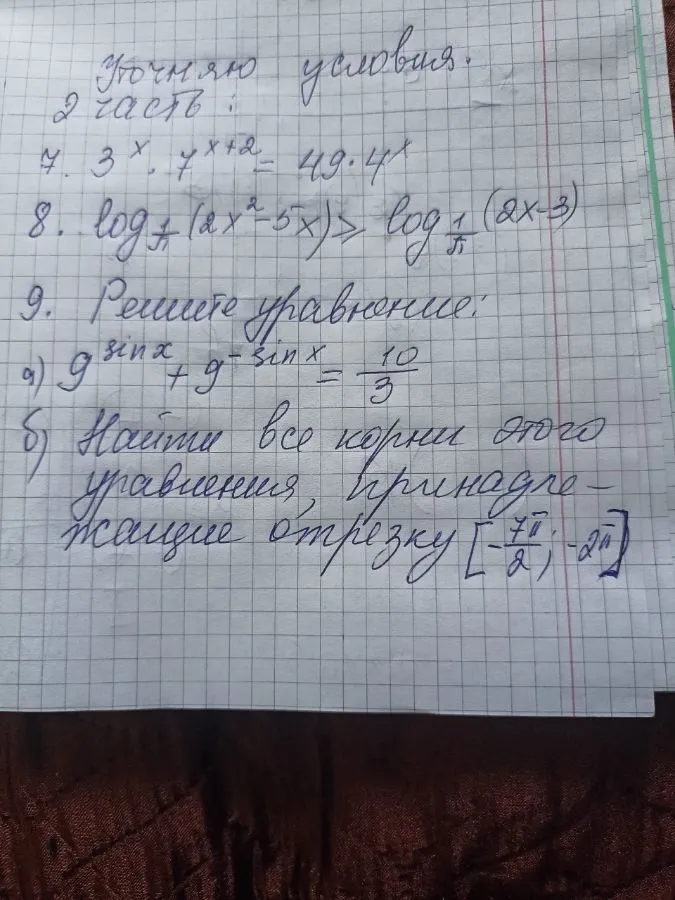 Уточняю условия.
2 часть:
7. 3^x · 7^(x+2) = 49 · 4^x
8. log_(1/π) (2x² - 5x) ≥ log_(1/π) (2x-3)
9. Решите уравнение:
а) 9^(sin x) + 9^(- sin x) = 10/3
б) Найти все корни этого
уравнения, принадле-
жащие отрезку [-7π/2; -2π]